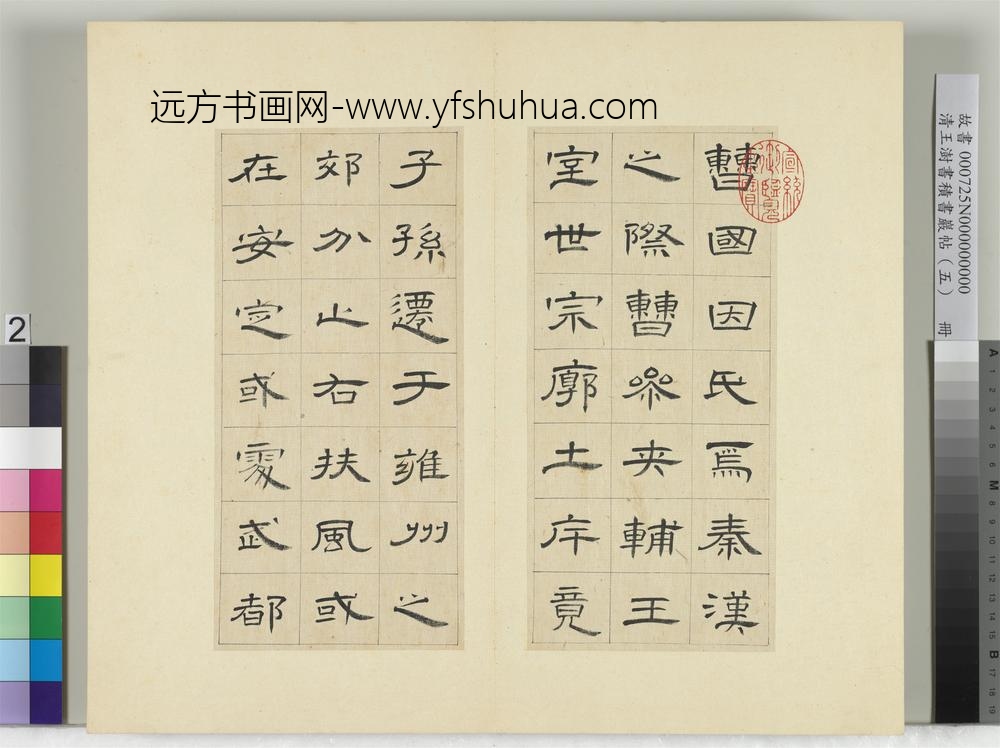 远方书画网-www.yfshuhua.com
曹國因氏焉秦漢
之際曹參夾輔王
室世宗廓土斥竟
子孫遷于雍州之
郊分止右扶風或
在安定或處武都
宣統
御覽
之寶
故書 000725N000000000
清王澍書積書巖帖（五） 冊
2
A 1 2 3 4 5 6 M 8 9 10 11 12 13 14 15 B 17 18 19